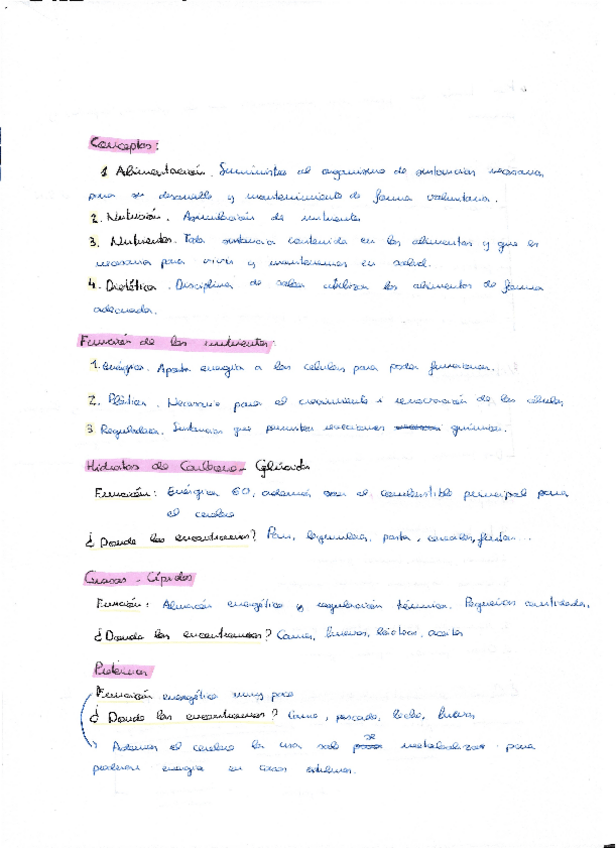 Conceptos:
1 Alimentación. Suministrar al organismo de sustancias necesarias
para su desarrollo y mantenimiento de forma voluntaria.
2. Nutrición. Asimilación de nutrientes
3. Nutrientes. Toda sustancia contenida en los alimentos y que es
necesaria para vivir y mantenernos en salud.
4. Dietética. Disciplina de saber utilizar los alimentos de forma
adecuada.
Función de los nutrientes:
1. Enérgica. Aporta energía a las células para poder funcionar.
2. Plástica. Necesario para el crecimiento i renovación de las células.
3 Reguladora. Sustancias que permiten reacciones químicas.
Hidratos de Carbono - Glúcidos
Función: Enérgica 60, además son el combustible principal para
el cerebro
¿Donde los encontramos? Pan, legumbres, pasta, cereales, frutas...
Grasas - Lípidos
Función: Almacén energético y regulación térmica. Pequeñas cantidades.
¿Donde las encontramos? Carnes, huevos, lácteos, aceites
Proteínas
Función energética muy poco
¿Donde las encontramos? Carne, pescado, leche, huevos
Además el cerebro la usa solo se metabolizar para
producir energía en casos extremos.